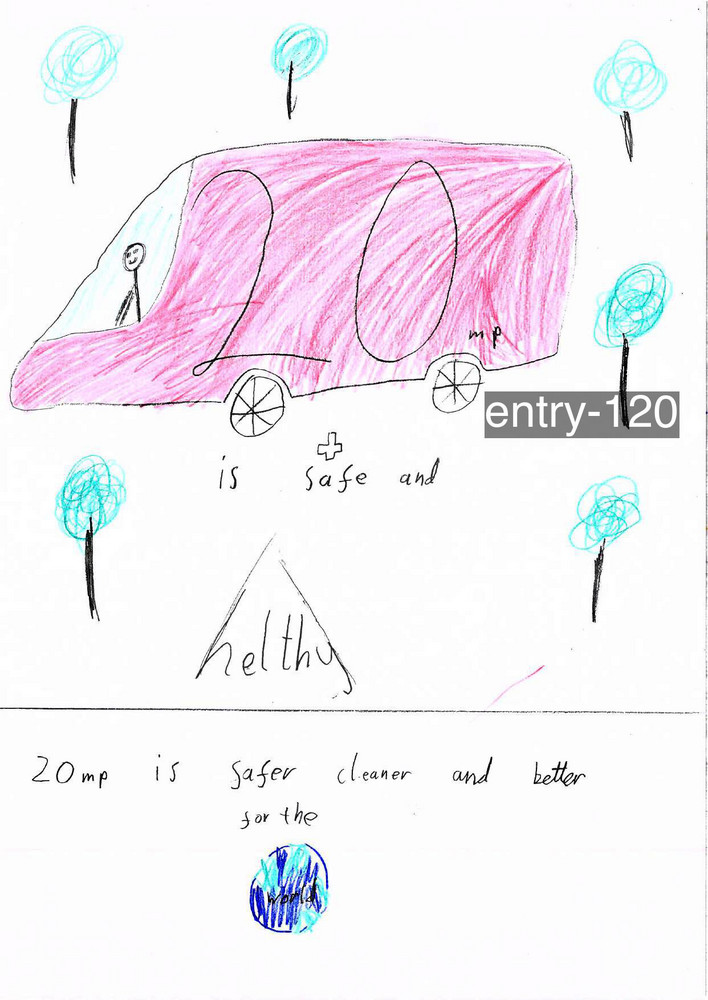 20
mp
entry-120
is safe and
helthy
20mp is safer cleaner and better
for the
world